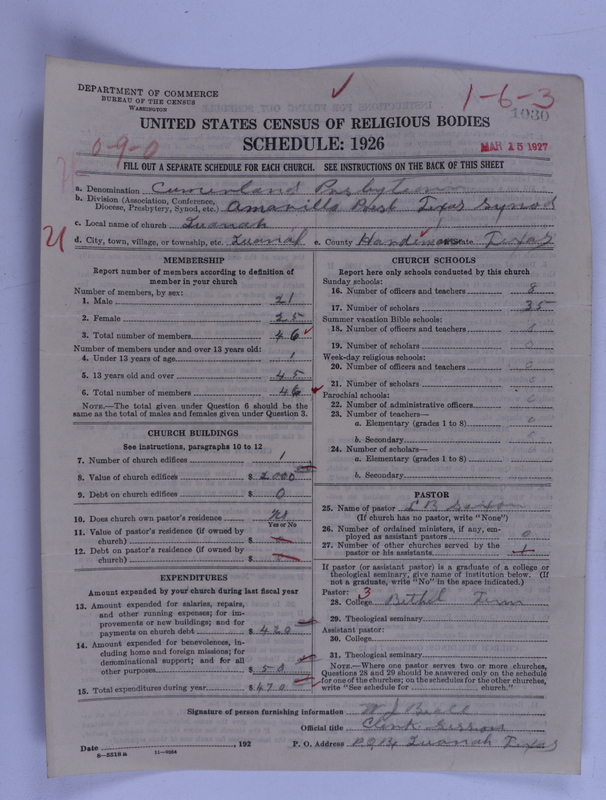 DEPARTMENT OF COMMERCE
BUREAU OF THE CENSUS
WASHINGTON
1-6-3
1030
UNITED STATES CENSUS OF RELIGIOUS BODIES
SCHEDULE: 1926
MAR 15 1927
0-9-0
FILL OUT A SEPARATE SCHEDULE FOR EACH CHURCH. SEE INSTRUCTIONS ON THE BACK OF THIS SHEET
a. Denomination Cumberland Presbyterian
b. Division (Association, Conference, Diocese, Presbytery, Synod, etc.) Amarillo Prest Texas Synod
c. Local name of church Quanah
d. City, town, village, or township, etc. Quanah e. County Hardeman State Texas
MEMBERSHIP
Report number of members according to definition of
member in your church
Number of members, by sex:
1. Male 21
2. Female 25
3. Total number of members 46
Number of members under and over 13 years old:
4. Under 13 years of age 1
5. 13 years old and over 45
6. Total number of members 46
NOTE.—The total given under Question 6 should be the
same as the total of males and females given under Question 3.
CHURCH BUILDINGS
See instructions, paragraphs 10 to 12
7. Number of church edifices 1
8. Value of church edifices $ 2000
9. Debt on church edifices $ 0
10. Does church own pastor's residence no
Yes or No
11. Value of pastor's residence (if owned by
church) $
12. Debt on pastor's residence (if owned by
church) $
EXPENDITURES
Amount expended by your church during last fiscal year
13. Amount expended for salaries, repairs,
and other running expenses; for im-
provements or new buildings; and for
payments on church debt $ 420
14. Amount expended for benevolences, in-
cluding home and foreign missions; for
denominational support; and for all
other purposes $ 50
15. Total expenditures during year $ 470
CHURCH SCHOOLS
Report here only schools conducted by this church
Sunday schools:
16. Number of officers and teachers 8
17. Number of scholars 35
Summer vacation Bible schools:
18. Number of officers and teachers 0
19. Number of scholars 0
Week-day religious schools:
20. Number of officers and teachers 0
21. Number of scholars 0
Parochial schools:
22. Number of administrative officers 0
23. Number of teachers—
a. Elementary (grades 1 to 8) 0
b. Secondary 0
24. Number of scholars—
a. Elementary (grades 1 to 8)
b. Secondary
PASTOR
25. Name of pastor L B
(If church has no pastor, write "None")
26. Number of ordained ministers, if any, em-
ployed as assistant pastors 0
27. Number of other churches served by the
pastor or his assistants
If pastor (or assistant pastor) is a graduate of a college or
theological seminary, give name of institution below. (If
not a graduate, write "No" in the space indicated.)
Pastor: 3
28. College Bethel Tenn
29. Theological seminary
Assistant pastor:
30. College
31. Theological seminary
NOTE.—Where one pastor serves two or more churches,
Questions 28 and 29 should be answered only on the schedule
for one of the churches; on the schedules for the other churches,
write "See schedule for church."
Signature of person furnishing information W. J. Beall
Official title Clerk Session
Date , 192
P. O. Address P.O. Quanah Texas
8—5518a
11—9264